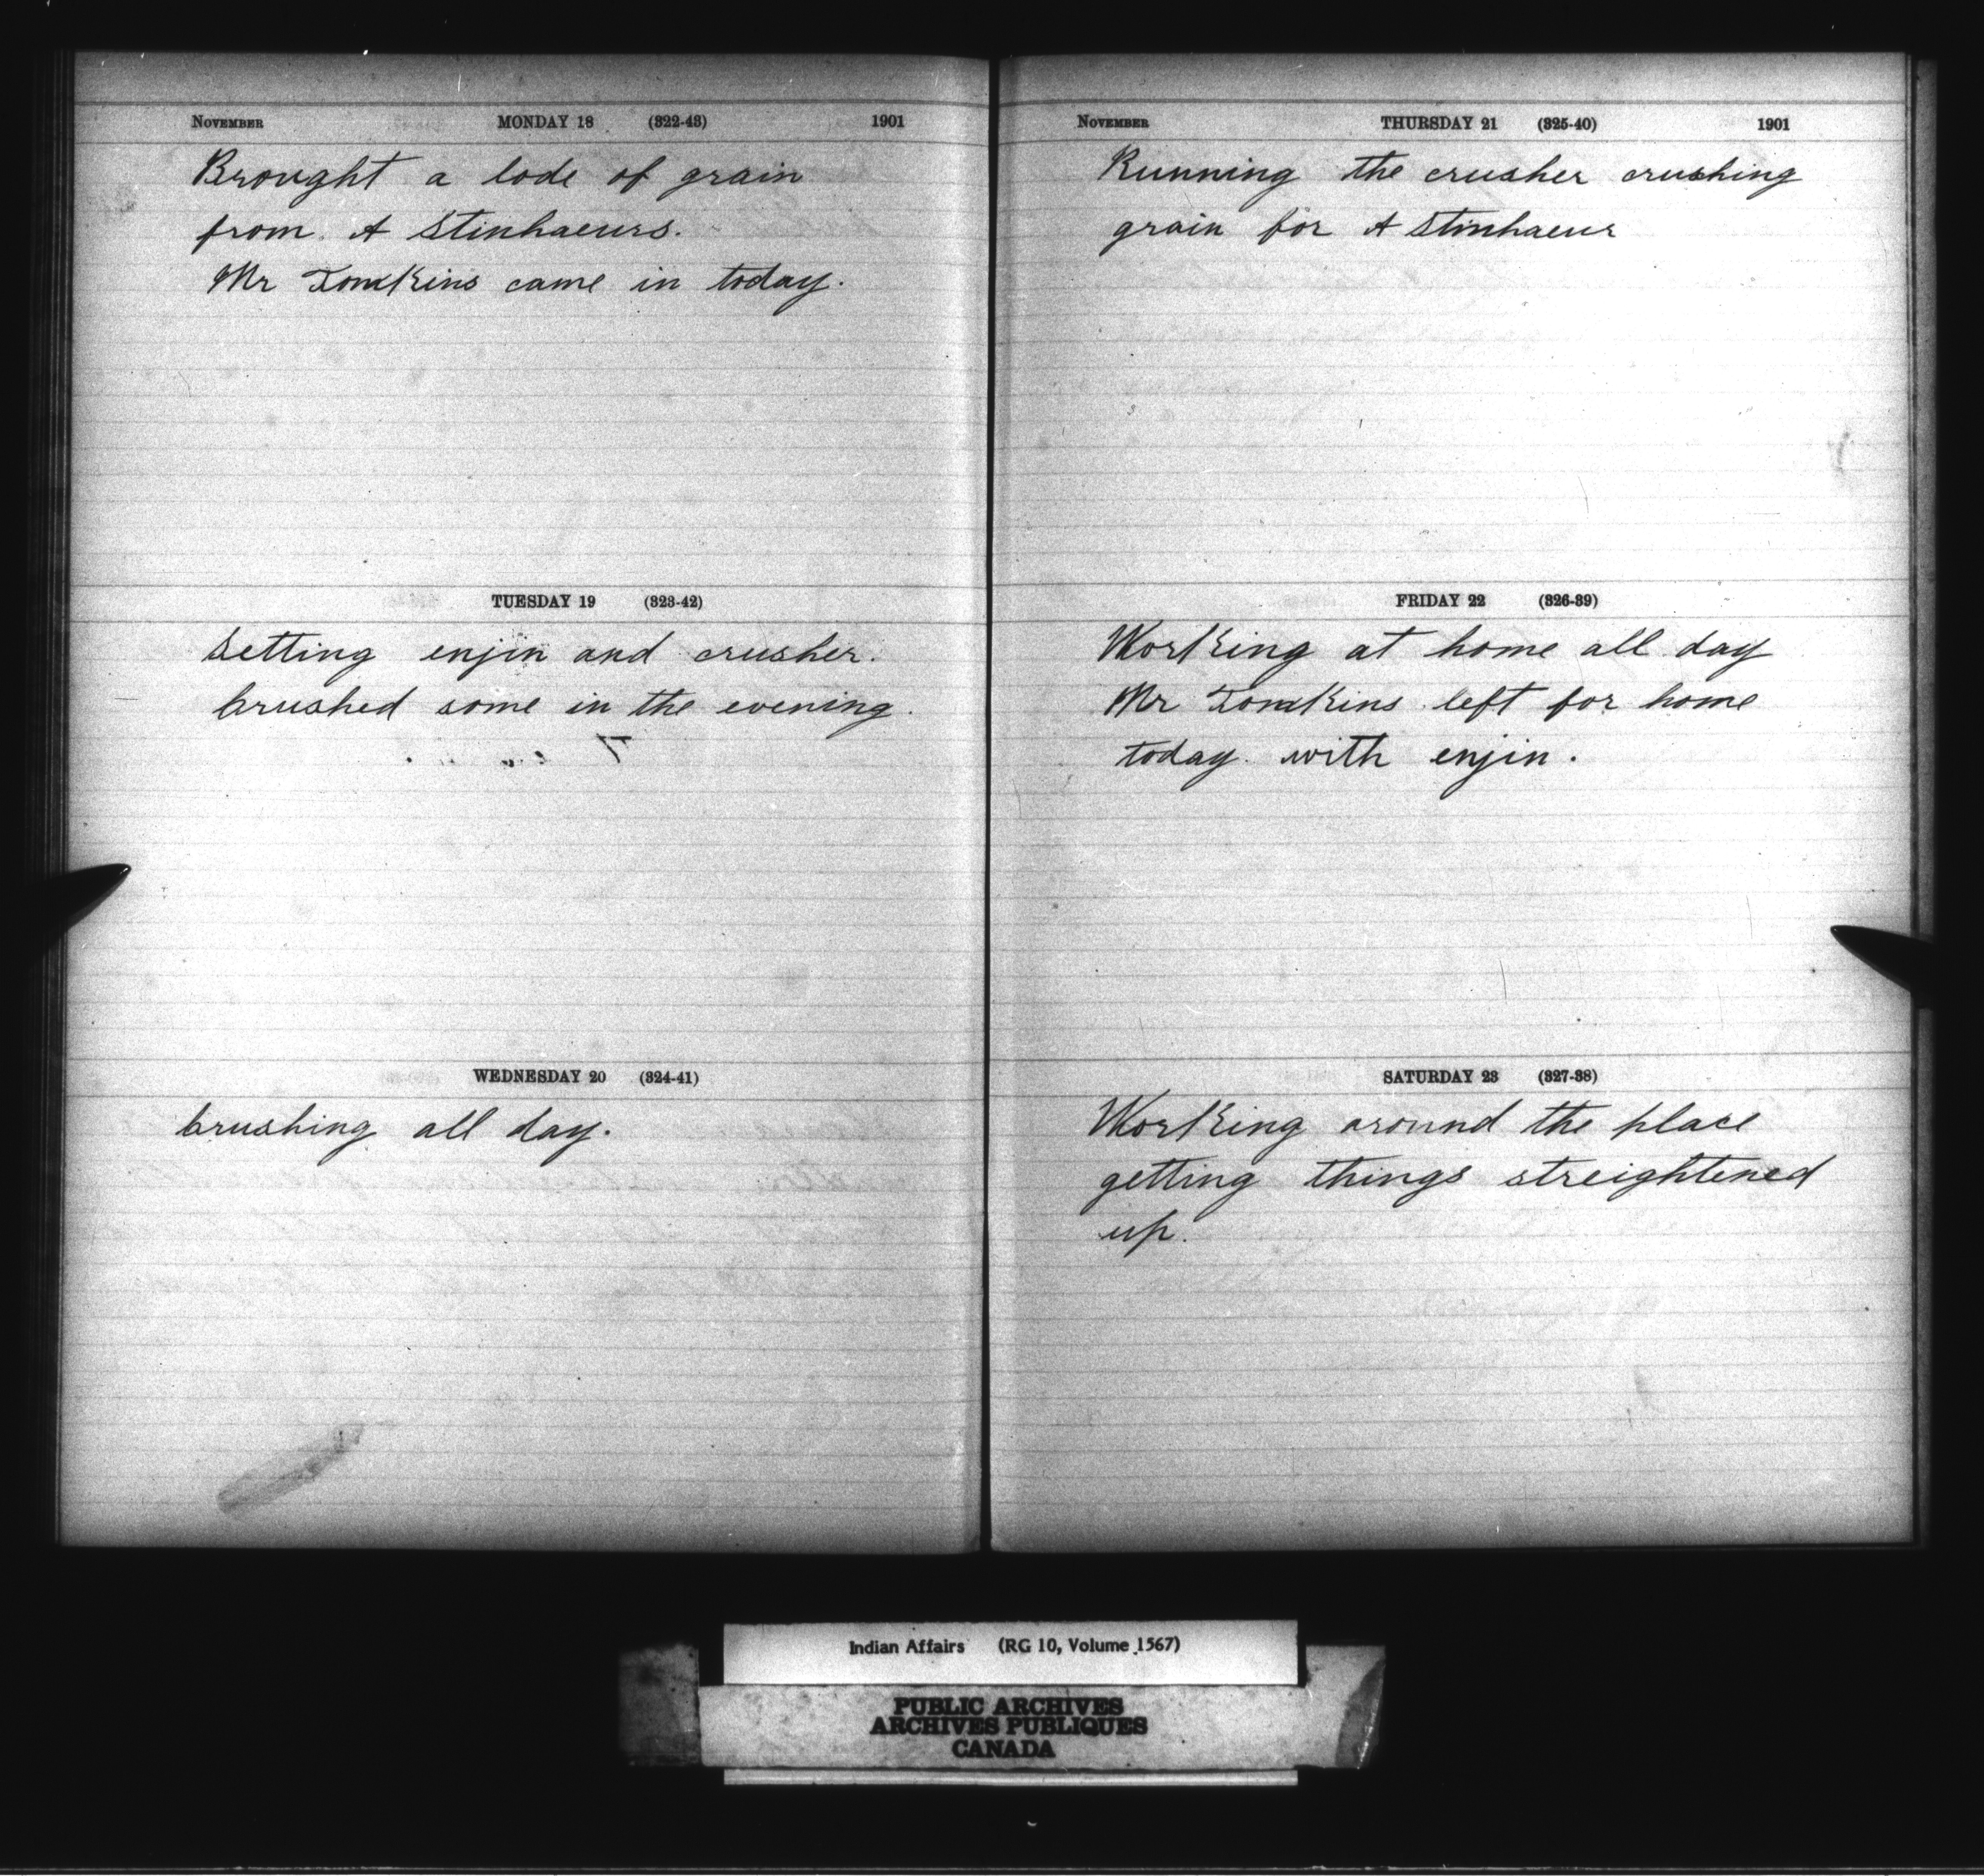 November MONDAY 18 (322-43) 1901
Brought a lode of grain
from A Stinhaeurs.
Mr Tomkins came in today.
TUESDAY 19 (323-42)
Setting enjin and crusher.
Crushed some in the evening.
WEDNESDAY 20 (324-41)
Crushing all day.
November THURSDAY 21 (325-40) 1901
Running the crusher crushing
grain for A Stinhaeur
FRIDAY 22 (326-39)
Working at home all day
Mr Tomkins left for home
today with enjin.
SATURDAY 23 (327-38)
Working around the place
getting things streightened
up.
Indian Affairs (RG 10, Volume 1567)
PUBLIC ARCHIVES
ARCHIVES PUBLIQUES
CANADA